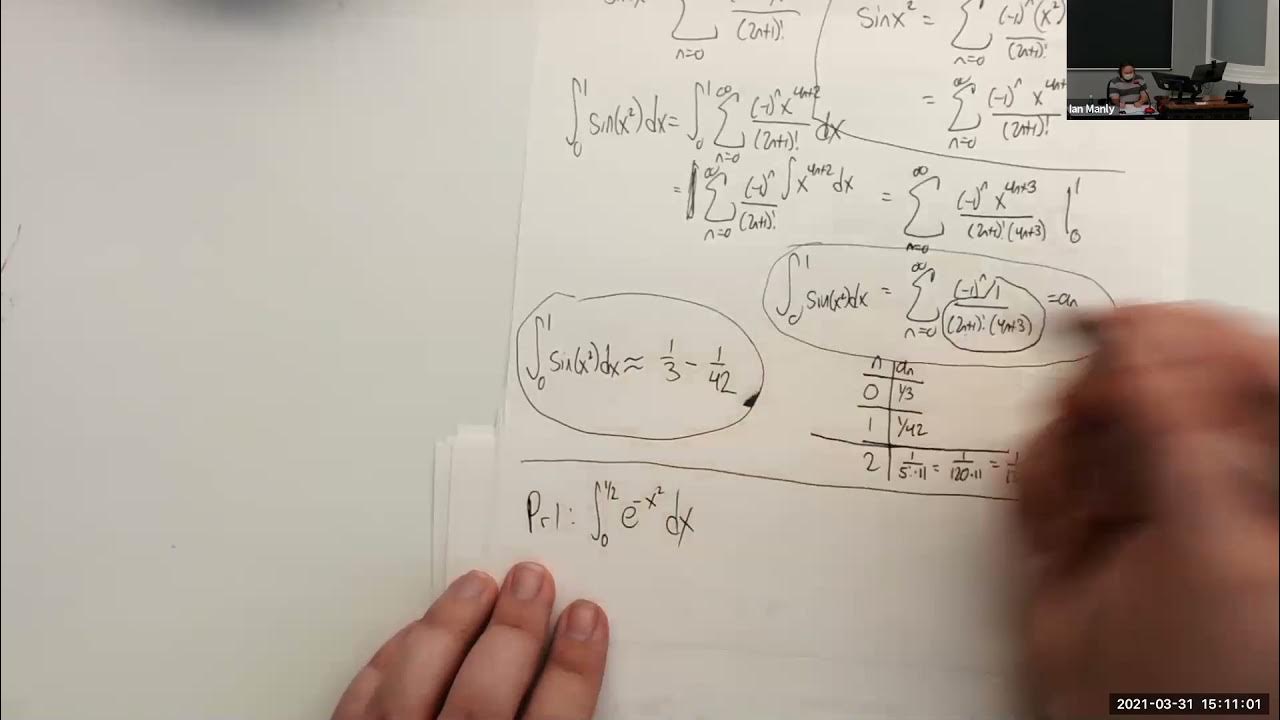 ∑ n=0 (2n+1)!
sin x² = ∑ n=0 (-1)ⁿ(x²) / (2n+1)!
Ian Manly
∫₀¹ sin(x²)dx = ∫₀¹ ∑ n=0 ∞ (-1)ⁿ x⁴ⁿ⁺² / (2n+1)! dx
= ∑ n=0 ∞ (-1)ⁿ x⁴ⁿ / (2n+1)!
= ∑ n=0 ∞ (-1)ⁿ / (2n+1)! ∫ x⁴ⁿ⁺² dx = ∑ n=0 ∞ (-1)ⁿ x⁴ⁿ⁺³ / (2n+1)!(4n+3) |₀¹
∫₀¹ sin(x²)dx = ∑ n=0 ∞ (-1)ⁿ 1 / (2n+1)!(4n+3) = an
∫₀¹ sin(x²)dx ≈ 1/3 - 1/42
n an
0 1/3
1 1/42
2 1/5!·11 = 1/120·11 =
Pr1: ∫₀^1/2 e^-x² dx
2021-03-31 15:11:01